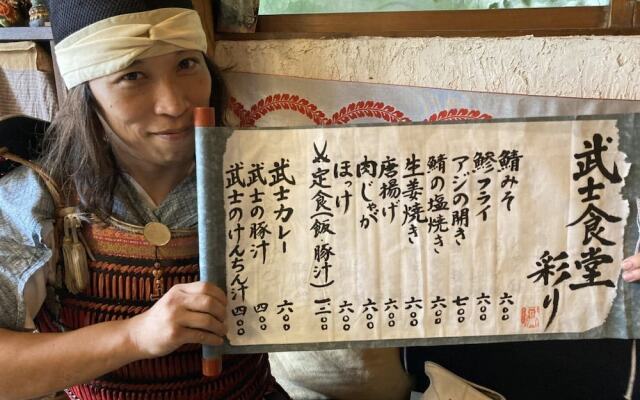 武士食堂
彩り
鯖みそ 六〇〇
鯵フライ 六〇〇
アジの開き 七〇〇
鯖の塩焼き 六〇〇
生姜焼き 六〇〇
唐揚げ 六〇〇
肉じゃが 六〇〇
ほっけ 六〇〇
定食(飯、豚汁) 一、三〇〇
武士カレー 六〇〇
武士の豚汁 四〇〇
武士のけんちん汁 四〇〇